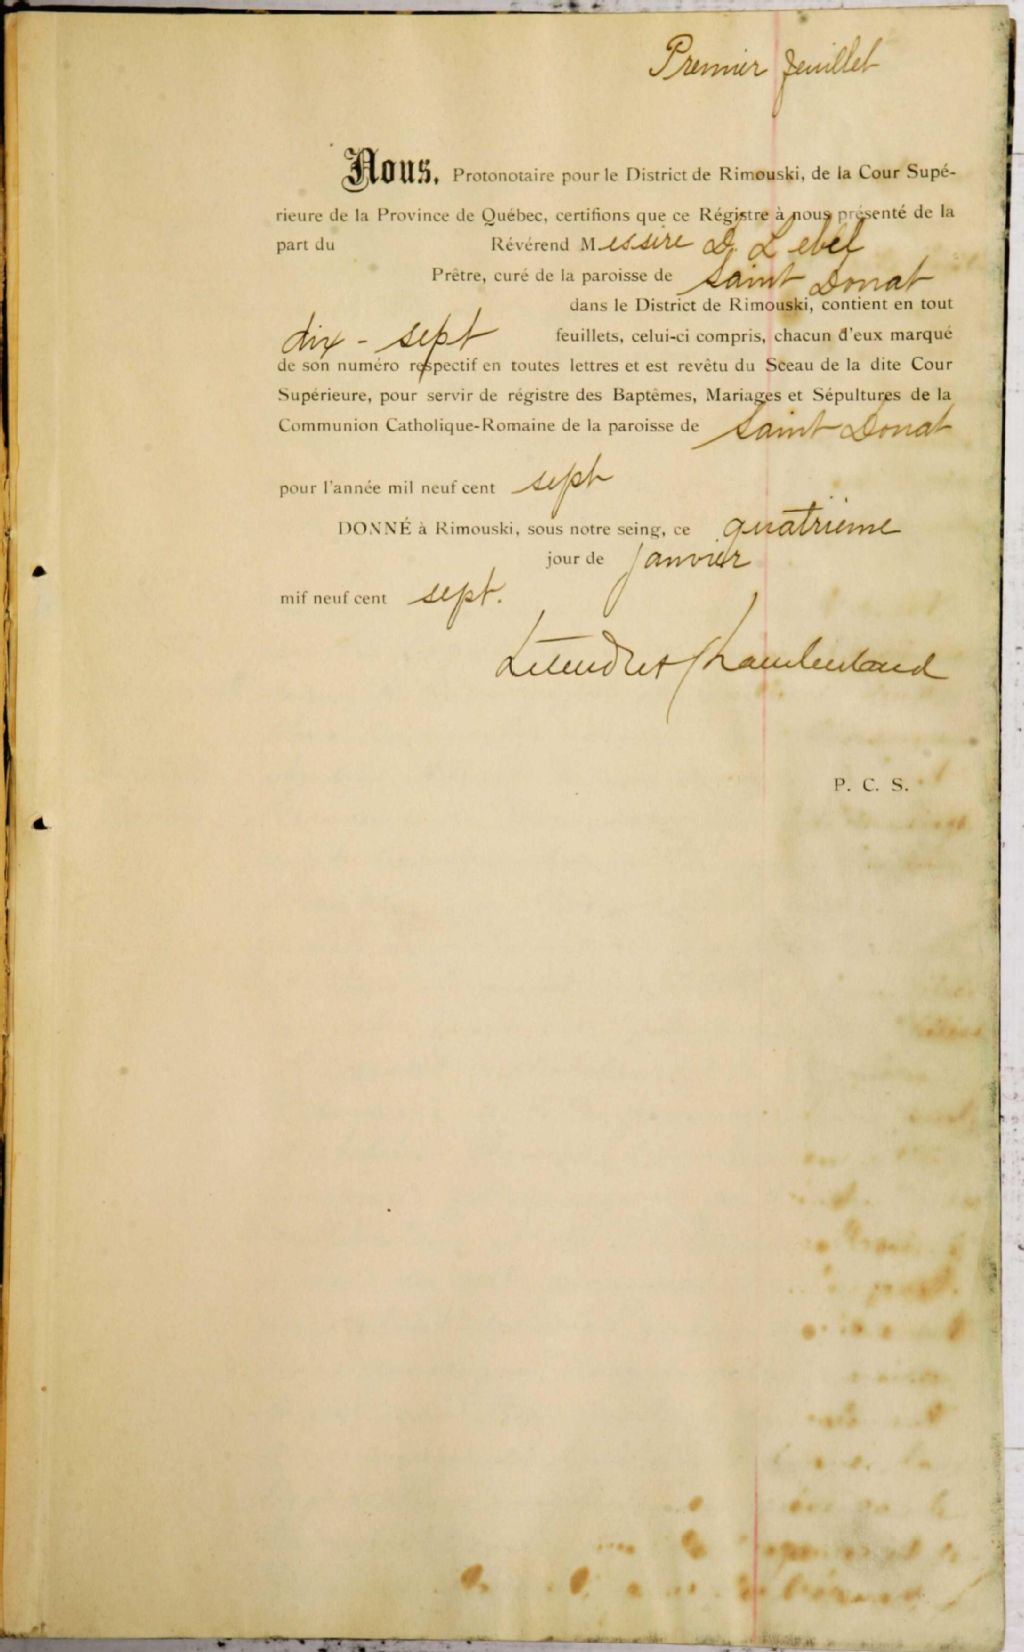 Premier feuillet
Nous, Protonotaire pour le District de Rimouski, de la Cour Supé-
rieure de la Province de Québec, certifions que ce Régistre à nous présenté de la
part du Révérend Messire D. Lebel
Prêtre, curé de la paroisse de Saint Donat
dans le District de Rimouski, contient en tout
dix-sept feuillets, celui-ci compris, chacun d'eux marqué
de son numéro respectif en toutes lettres et est revêtu du Sceau de la dite Cour
Supérieure, pour servir de régistre des Baptêmes, Mariages et Sépultures de la
Communion Catholique-Romaine de la paroisse de Saint Donat
pour l'année mil neuf cent sept
DONNÉ à Rimouski, sous notre seing, ce quatrième
jour de janvier
mif neuf cent sept.
Letendre & Chamberland
P. C. S.